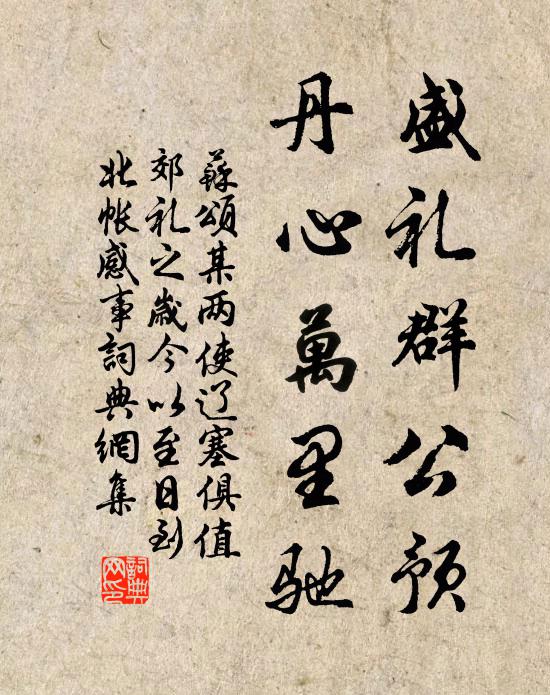 盛礼群公预
丹心萬里馳
蘇頌某两使辽塞俱值
郊礼之歲今以至日到
北帐感事詞典網集
詞典
网印